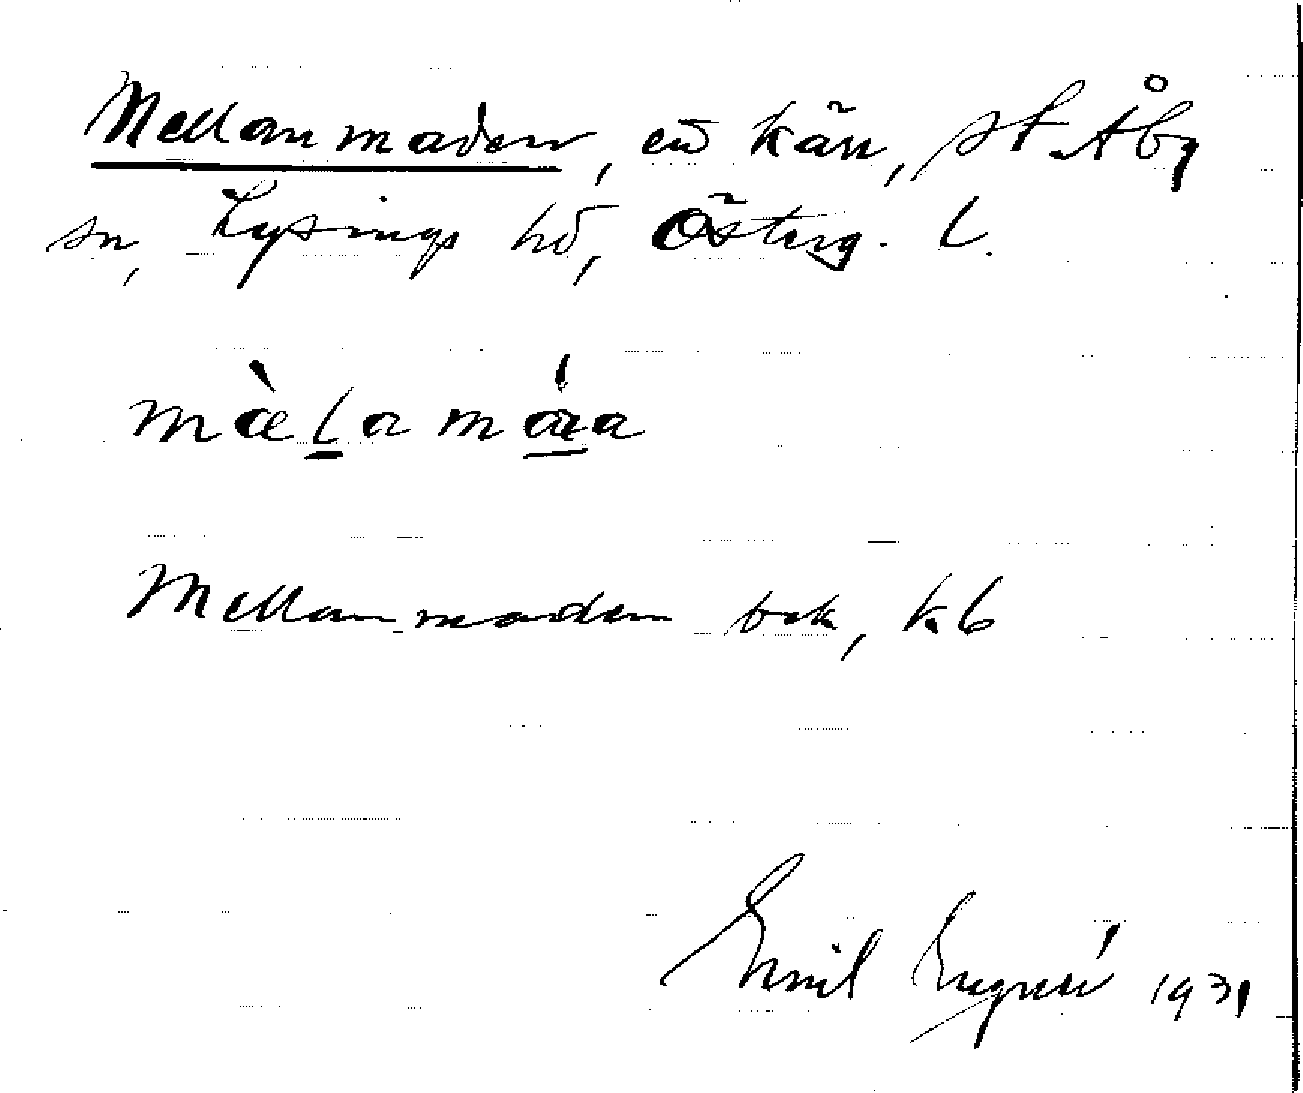 Mellanmaden, ett kärr, St. Åby
sn, Lysings hd, Österg. L.
mæ̀lamáa
Mellanmaden bsk, kb
Emil 1931